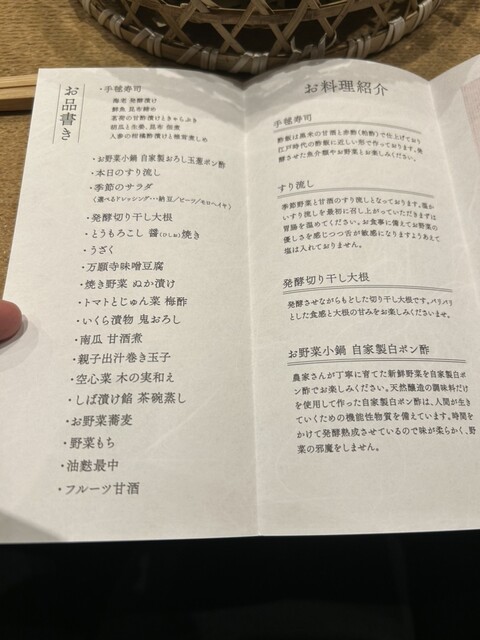 お品書き
・手毬寿司
海老 発酵漬け
鮮魚 昆布締め
茗荷の甘酢漬けときゃらぶき
胡瓜と生姜、昆布 佃煮
人参の柑橘酢漬けと椎茸煮しめ
・お野菜小鍋 自家製おろし玉葱ポン酢
・本日のすり流し
・季節のサラダ
(選べるドレッシング・・・納豆/ビーツ/モロヘイヤ)
・発酵切り干し大根
・とうもろこし 醤(ひしお)焼き
・うざく
・万願寺味噌豆腐
・焼き野菜 ぬか漬け
・トマトとじゅん菜 梅酢
・いくら漬物 鬼おろし
・南瓜 甘酒煮
・親子出汁巻き玉子
・空心菜 木の実和え
・しば漬け餡 茶碗蒸し
・お野菜蕎麦
・野菜もち
・油麩最中
・フルーツ甘酒
お料理紹介
手毬寿司
酢飯は黒米の甘酒と赤酢(粕酢)で仕上げており
江戸時代の酢飯に近しい形で作っております。発
酵させた魚介類やお野菜とお楽しみください。
すり流し
季節野菜と甘酒のすり流しとなっております。温か
いすり流しを最初に召し上がっていただきまずは
胃腸を温めてください。お食事に備えてお野菜の
優しさを感じつつ舌が敏感になりますようあえて
塩は入れておりません。
発酵切り干し大根
発酵させながらもどした切り干し大根です。パリパリ
とした食感と大根の甘みをお楽しみくださいませ。
お野菜小鍋 自家製白ポン酢
農家さんが丁寧に育てた新鮮野菜を自家製白ポン
ン酢でお楽しみください。天然醸造の調味料だけ
を使用して作った自家製白ポン酢は、人間が生き
ていくための機能性物質を備えています。時間を
かけて発酵熟成させているので味が柔らかく、野
菜の邪魔をしません。